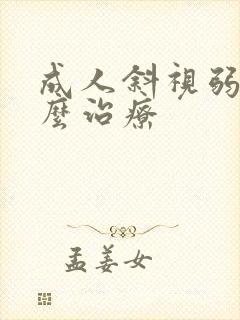 成人斜視弱
麼治療
孟姜女